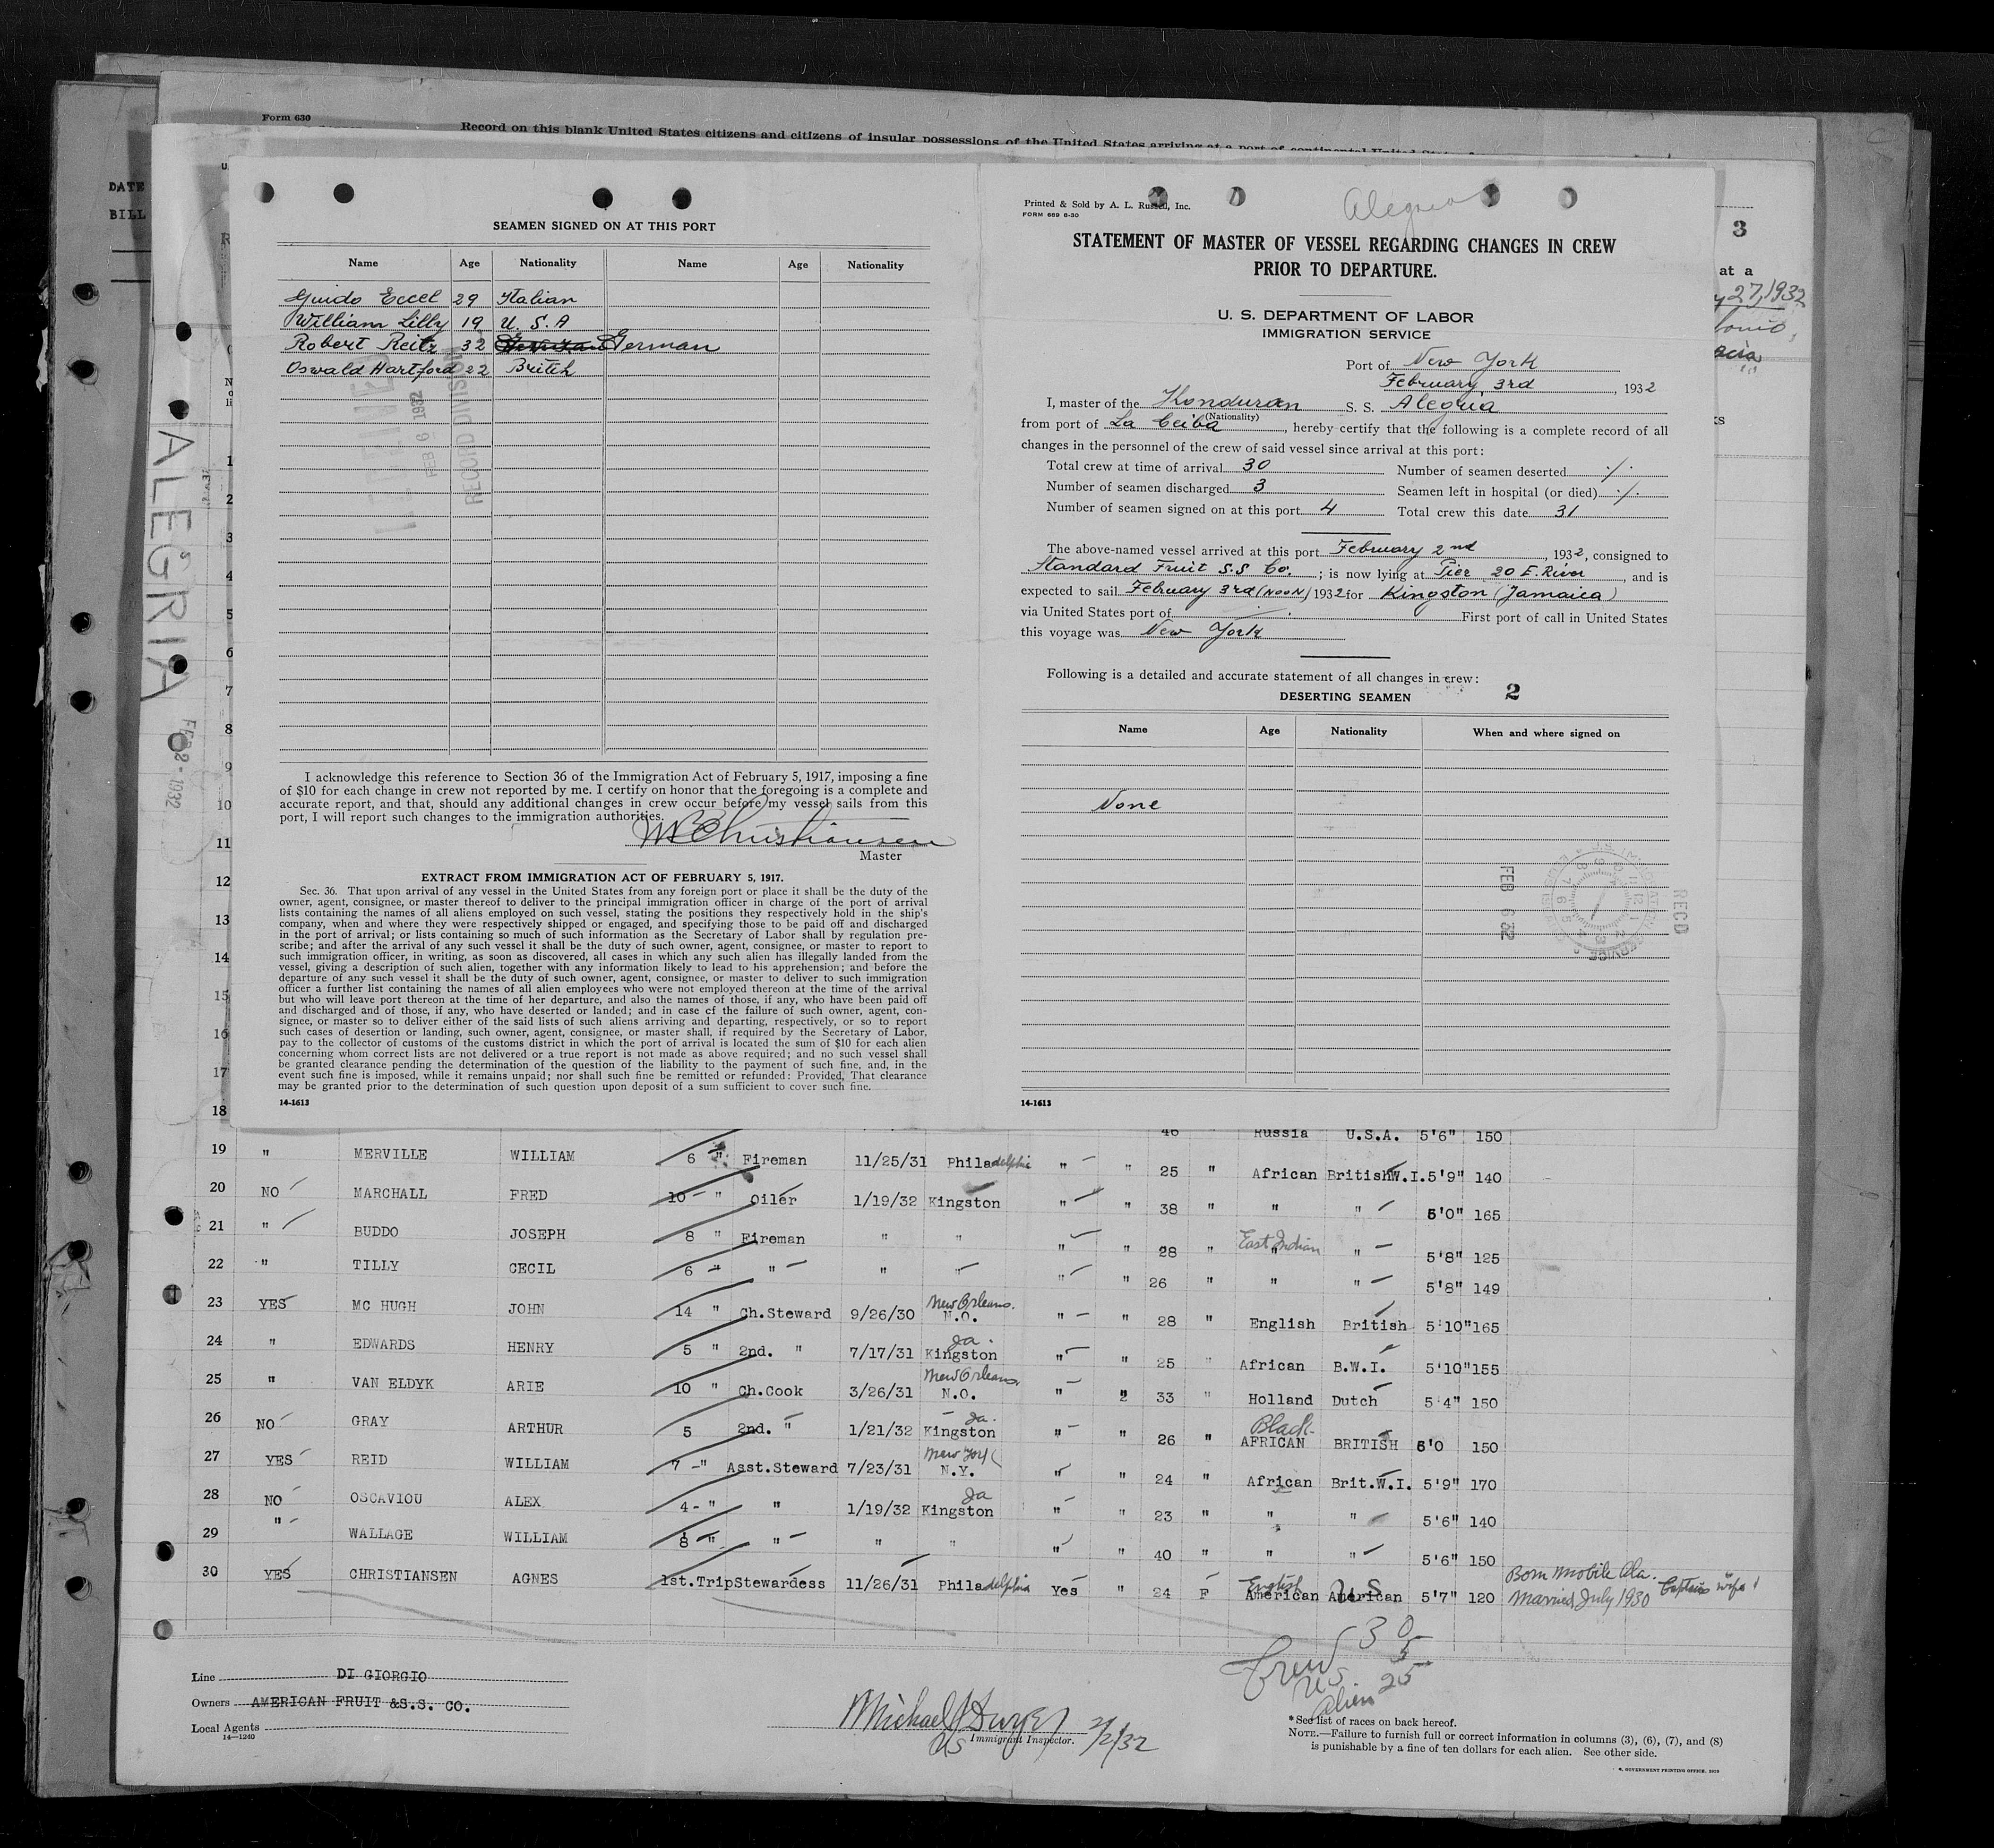 Form 630
Record on this blank United States citizens and citizens of insular possessions of the United States arriving at a port of continental United
DATE
BILL
3
at a
27, 1932
ALEGRIA
FEB 2 - 1932
SEAMEN SIGNED ON AT THIS PORT
Name Age Nationality Name Age Nationality
Guido Eccel 29 Italian
William Lilly 19 U. S. A
Robert Reitz 32 German German
Oswald Hartford 22 Britch
FEB 6 1932
RECORD DIVISION
I acknowledge this reference to Section 36 of the Immigration Act of February 5, 1917, imposing a fine
of $10 for each change in crew not reported by me. I certify on honor that the foregoing is a complete and
accurate report, and that, should any additional changes in crew occur before my vessel sails from this
port, I will report such changes to the immigration authorities.
Christiansen
Master
EXTRACT FROM IMMIGRATION ACT OF FEBRUARY 5, 1917.
Sec. 36. That upon arrival of any vessel in the United States from any foreign port or place it shall be the duty of the
owner, agent, consignee, or master thereof to deliver to the principal immigration officer in charge of the port of arrival
lists containing the names of all aliens employed on such vessel, stating the positions they respectively hold in the ship's
company, when and where they were respectively shipped or engaged, and specifying those to be paid off and discharged
in the port of arrival; or lists containing so much of such information as the Secretary of Labor shall by regulation pre-
scribe; and after the arrival of any such vessel it shall be the duty of such owner, agent, consignee, or master to report to
such immigration officer, in writing, as soon as discovered, all cases in which any such alien has illegally landed from the
vessel, giving a description of such alien, together with any information likely to lead to his apprehension; and before the
departure of any such vessel it shall be the duty of such owner, agent, consignee, or master to deliver to such immigration
officer a further list containing the names of all alien employees who were not employed thereon at the time of the arrival
but who will leave port thereon at the time of her departure, and also the names of those, if any, who have been paid off
and discharged and of those, if any, who have deserted or landed; and in case cf the failure of such owner, agent, con-
signee, or master so to deliver either of the said lists of such aliens arriving and departing, respectively, or so to report
such cases of desertion or landing, such owner, agent, consignee, or master shall, if required by the Secretary of Labor,
pay to the collector of customs of the customs district in which the port of arrival is located the sum of $10 for each alien
concerning whom correct lists are not delivered or a true report is not made as above required; and no such vessel shall
be granted clearance pending the determination of the question of the liability to the payment of such fine, and, in the
event such fine is imposed, while it remains unpaid; nor shall such fine be remitted or refunded: Provided, That clearance
may be granted prior to the determination of such question upon deposit of a sum sufficient to cover such fine.
14-1613
Printed & Sold by A. L. Russell, Inc.
FORM 689 8-30
Alegria
STATEMENT OF MASTER OF VESSEL REGARDING CHANGES IN CREW
PRIOR TO DEPARTURE.
U. S. DEPARTMENT OF LABOR
IMMIGRATION SERVICE
Port of New York
February 3rd, 1932
I, master of the Honduran S. S. Alegria
(Nationality)
from port of La Ceiba, hereby certify that the following is a complete record of all
changes in the personnel of the crew of said vessel since arrival at this port:
Total crew at time of arrival 30 Number of seamen deserted ./.
Number of seamen discharged 3 Seamen left in hospital (or died) ./.
Number of seamen signed on at this port 4 Total crew this date 31
The above-named vessel arrived at this port February 2nd, 1932, consigned to
Standard Fruit S.S Co. ; is now lying at Pier 20 E. River, and is
expected to sail February 3rd (NOON) 1932 for Kingston (Jamaica)
via United States port of ./. First port of call in United States
this voyage was New York
Following is a detailed and accurate statement of all changes in crew:
DESERTING SEAMEN 2
Name Age Nationality When and where signed on
None
FEB 6 32
RECD
14-1613
1
2
3
4
5
6
7
8
9
10
11
12
13
14
15
16
17
18
46 " Russia U.S.A. 5'6" 150
19 " MERVILLE WILLIAM 6 " Fireman 11/25/31 Philadelphia " " 25 " African British W.I. 5'9" 140
20 NO MARCHALL FRED 10 " Oiler 1/19/32 Kingston " " 38 " " " 5'0" 165
21 " BUDDO JOSEPH 8 " Fireman " " " " 28 " East Indian " " 5'8" 125
22 " TILLY CECIL 6 " " " " " " 26 " " " 5'8" 149
23 YES MC HUGH JOHN 14 " Ch.Steward 9/26/30 New Orleans. N.O. " " 28 " English British 5'10" 165
24 " EDWARDS HENRY 5 " 2nd. " 7/17/31 Ja. Kingston " " 25 " African B.W.I. 5'10" 155
25 " VAN ELDYK ARIE 10 " Ch.Cook 3/26/31 New Orleans N.O. " " 33 " Holland Dutch 5'4" 150
26 NO GRAY ARTHUR 5 2nd. " 1/21/32 Ja. Kingston " " 26 " Black AFRICAN BRITISH 5'0 150
27 YES REID WILLIAM 7 " Asst.Steward 7/23/31 New York N.Y. " " 24 " African Brit.W.I. 5'9" 170
28 NO OSCAVIOU ALEX 4 " " 1/19/32 Ja Kingston " " 23 " " " 5'6" 140
29 " WALLAGE WILLIAM 8 " " " " " " 40 " " " 5'6" 150
30 YES CHRISTIANSEN AGNES 1st.Trip Stewardess 11/26/31 Philadelphia Yes " 24 F English American U.S American 5'7" 120 Born Mobile Ala. Married July 1930 Captains wife
Crew 30
US 5
Alien 25
Line DI GIORGIO
Owners AMERICAN FRUIT &S.S. CO.
Local Agents
14-1240
Michael J Dwyer 2/2/32
US Immigrant Inspector.
*See list of races on back hereof.
NOTE.—Failure to furnish full or correct information in columns (3), (6), (7), and (8)
is punishable by a fine of ten dollars for each alien. See other side.
GOVERNMENT PRINTING OFFICE